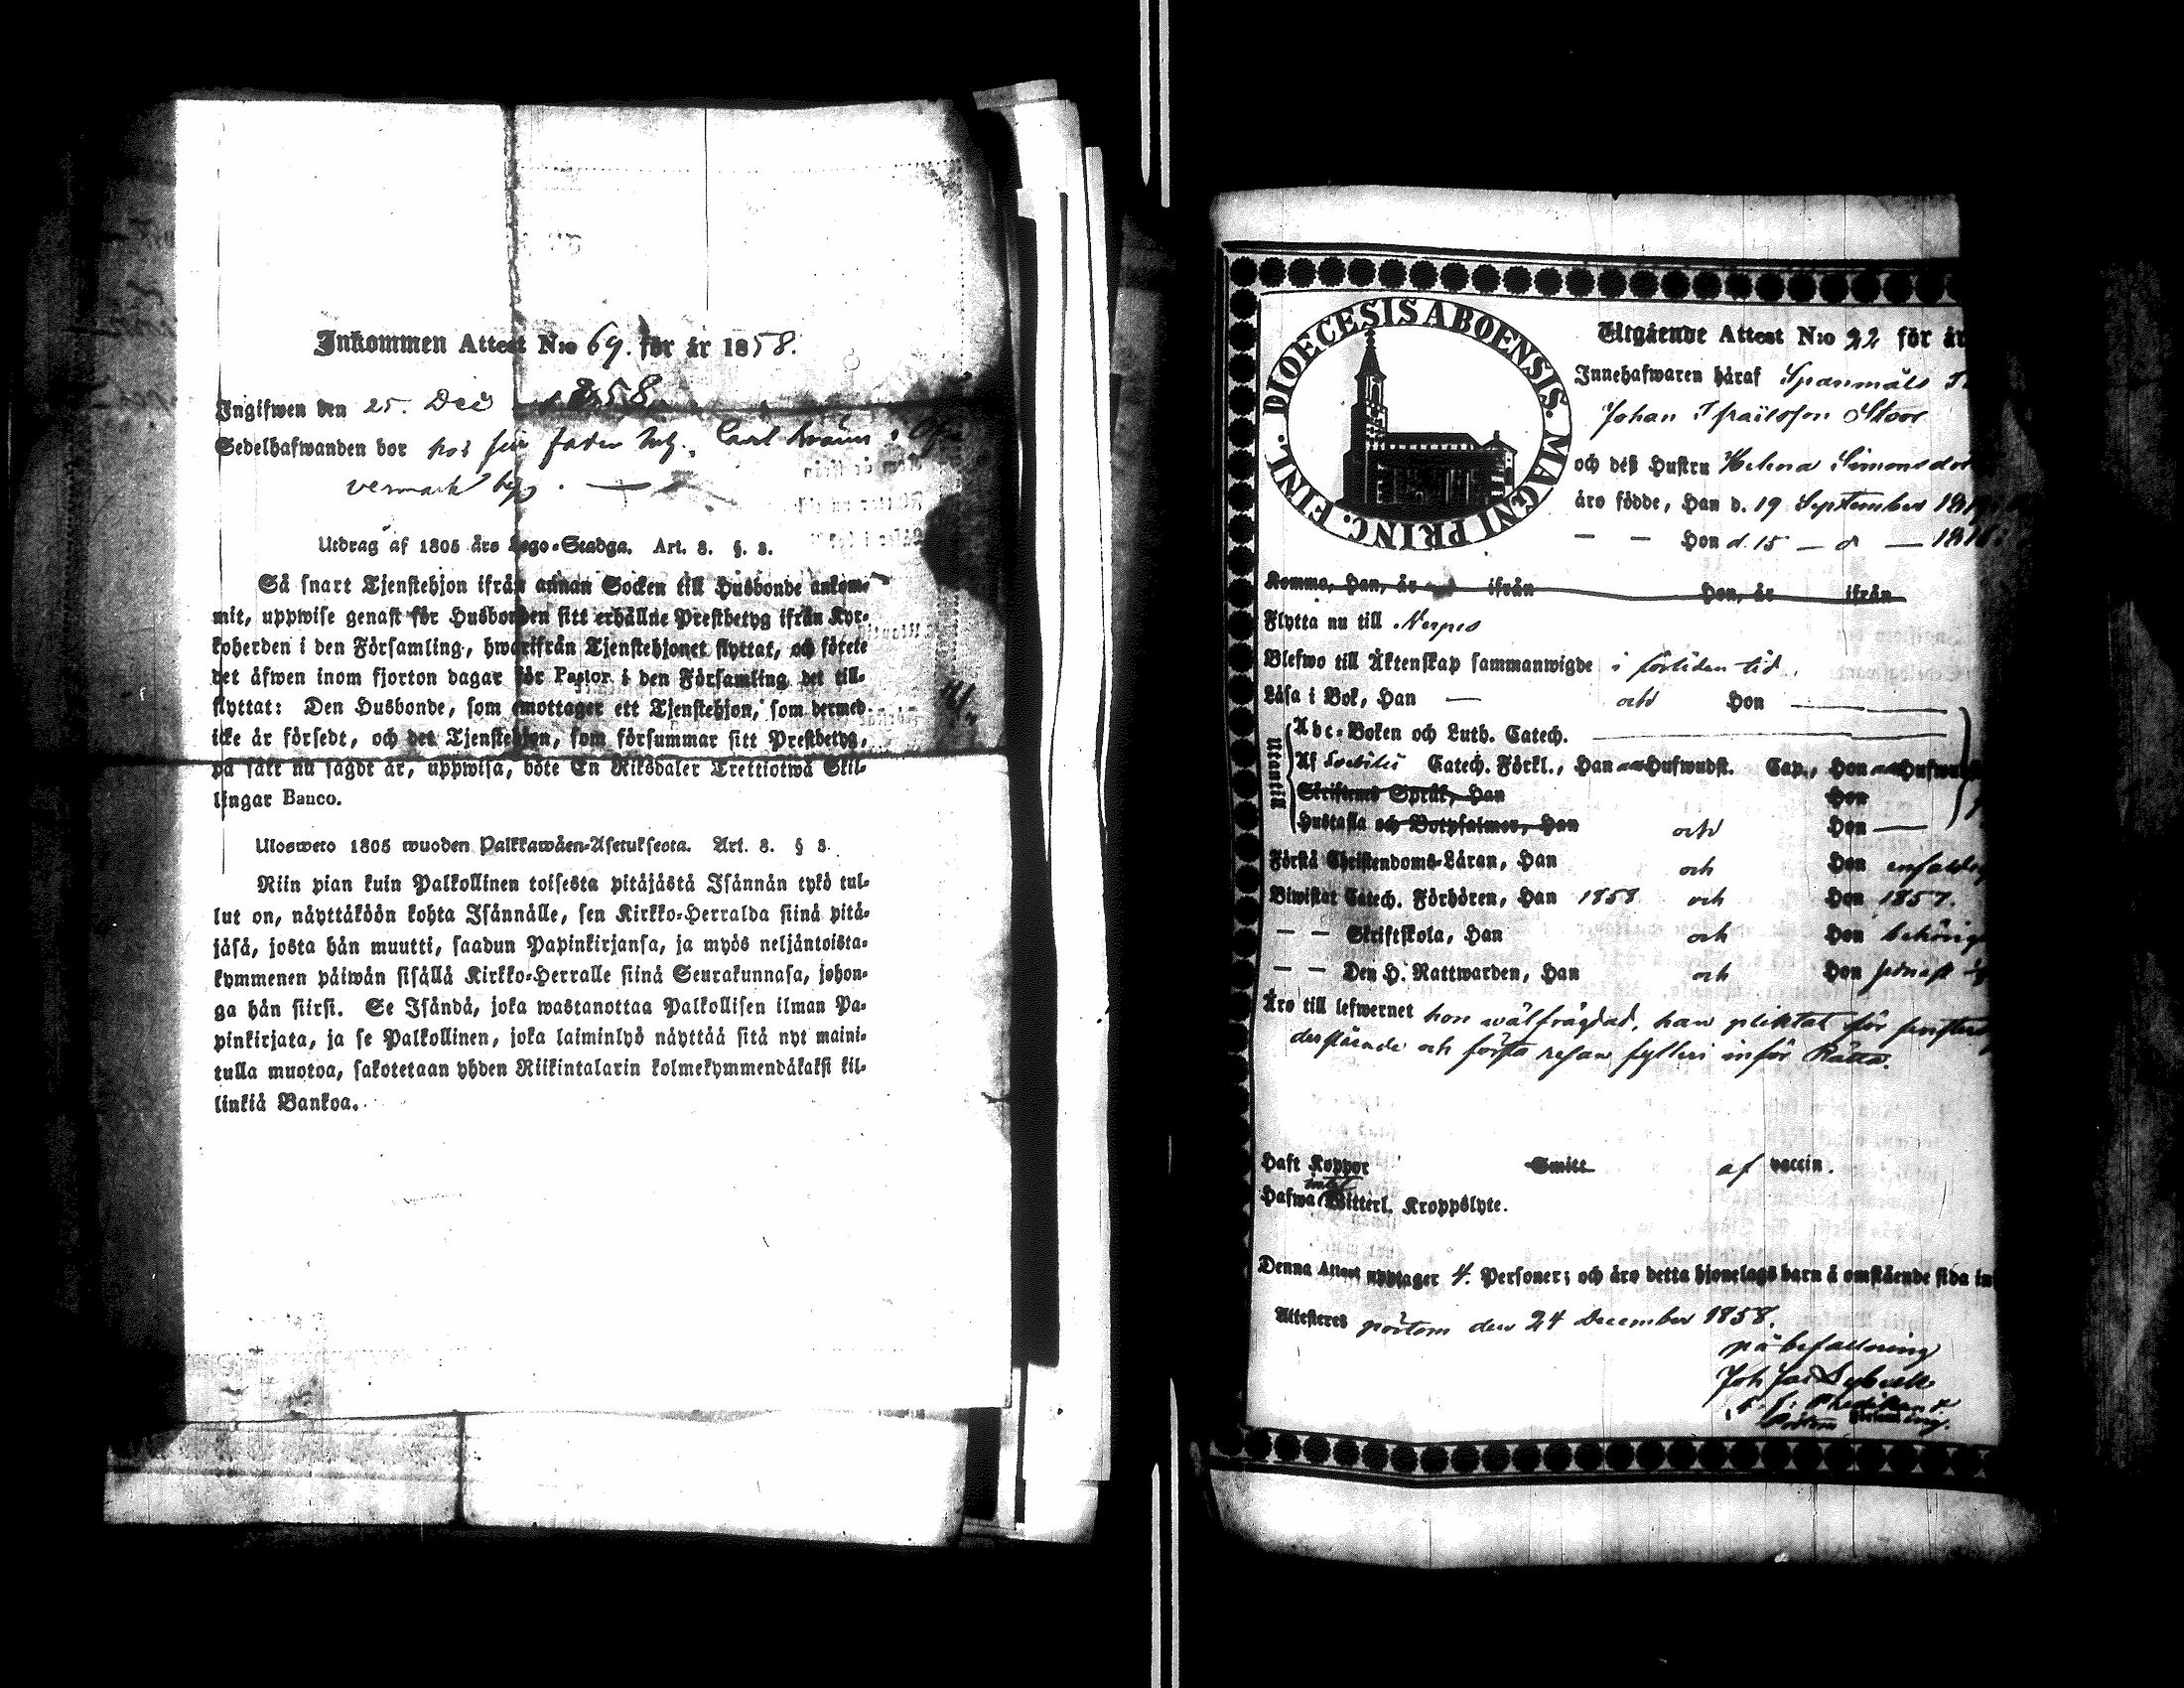 Inkommen Attest N:o 69. för år 1858.
Ingifwen den 25. Dec 1858
Sedelhafwanden bor hos sin fader Carl
vermark by.
Utdrag af 1805 års Lego-Stadga. Art. 8. §. 3.
Så snart Tjenstehjon ifrån annan Socken till Husbonde ankom-
mit, uppwise genast för Husbonden sitt erhållne Prestbetyg ifrån Kyr-
koherden i den Församling, hwarifrån Tjenstehjonet flyttat, och förete
det äfwen inom fjorton dagar för Pastor i den Församling det till-
flyttat: Den Husbonde, som emottager ett Tjenstehjon, som dermed
icke är försedt, och det Tjenstehjon, som försummar sitt Prestbetyg,
på sätt nu sagdt är, uppwisa, böte En Riksdaler Trettiotwå Skil-
lingar Banco.
Ulosweto 1805 wuoden Palkkawäen-Asetuksesta. Art. 8. § 3.
Niin pian kuin Palkollinen toisesta pitäjästä Isännän tykö tul-
lut on, näyttäköön kohta Isännälle, sen Kirkko-Herralda siinä pitä-
jäsä, josta hän muutti, saadun Papinkirjansa, ja myös neljäntoista-
kymmenen päiwän sisällä Kirkko-Herralle siinä Seurakunnasa, johon-
ga hän siirsi. Se Isändä, joka wastanottaa Palkollisen ilman Pa-
pinkirjata, ja se Palkollinen, joka laiminlyö näyttää sitä nyt maini-
tulla muotoa, sakotetaan yhden Riikintalarin kolmekymmendäkaksi kil-
linkiä Bankoa.
DIOECESIS ABOENSIS. MAGNI PRINC. FINL.
Utgående Attest N:o 22 för år
Innehafwaren häraf Spanmåls
Johan Israelsson Stoor
och deß Hustru Helena Simonsdot
äro födde, Han d. 19 September 181
— — Hon d. 15 — 8 — 1816
Komma, Han, år ifrån Hon, år ifrån
Flytta nu till Nerpes
Blefwo till Äktenskap sammanwigde i förliden tid.
Läsa i Bok, Han — och Hon —
Utantill
Abc-Boken och Luth. Catech. —
Af Svebilii Catech. Förkl., Han Hufwudst. Cap., Hon Hufwudst
Skriftenes Språk, Han Hon
Hustafla och Botpsalmer, Han och Hon —
Förstå Christendoms-Läran, Han och Hon enfaldig
Biwistat Catech. Förhören, Han 1858 och Hon 1857.
— — Skriftskola, Han och Hon behörig
— — Den H. Nattwarden, Han och Hon
Äro till lefwernet hon wälfrägdad, han pliktat för
och första resan fylleri inför Rätta.
Haft Koppor Smitt af vaccin.
Hafwa intet Witterl. Kroppslyte.
Denna Attest upptager 4. Personer; och äro detta hjonelags barn å omstående sida in
Attesteras Pörtom den 24 December 1858.
på befallning
Joh
Predikant